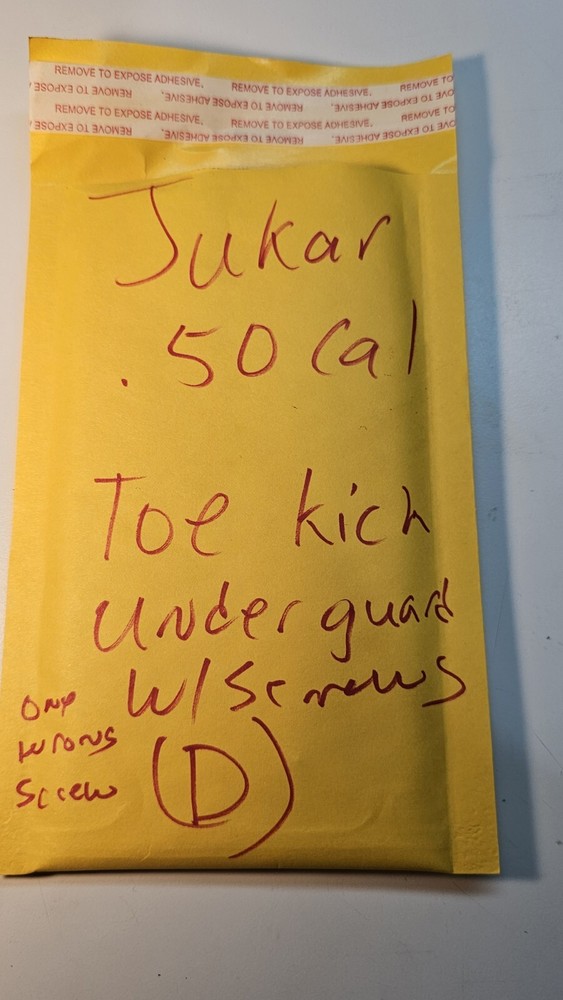 REMOVE TO EXPOSE ADHESIVE. REMOVE TO EXPOSE ADHESIVE. REMOVE TO
REMOVE TO EXPOSE ADHESIVE. REMOVE TO EXPOSE ADHESIVE.
REMOVE TO EXPOSE ADHESIVE. REMOVE TO EXPOSE ADHESIVE. REMOVE TO
REMOVE TO EXPOSE ADHESIVE. REMOVE TO EXPOSE ADHESIVE.
Jukar
.50 Cal
Toe kick
Under guard
W/Screws
One
wrong
Screw
(D)